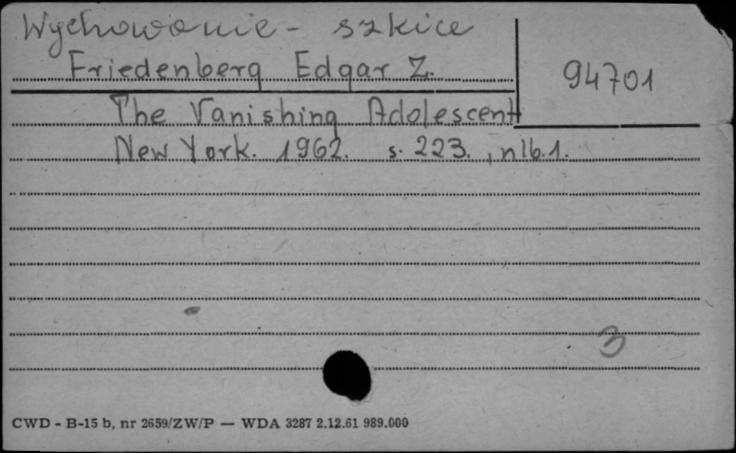 Wychowanie - szkice
Friedenberg Edgar Z.
94701
The Vanishing Adolescent
New York. 1962. s. 223. , nlb. 1.
3
CWD - B-15 b, nr 2659/ZW/P — WDA 3287 2.12.61 989.000